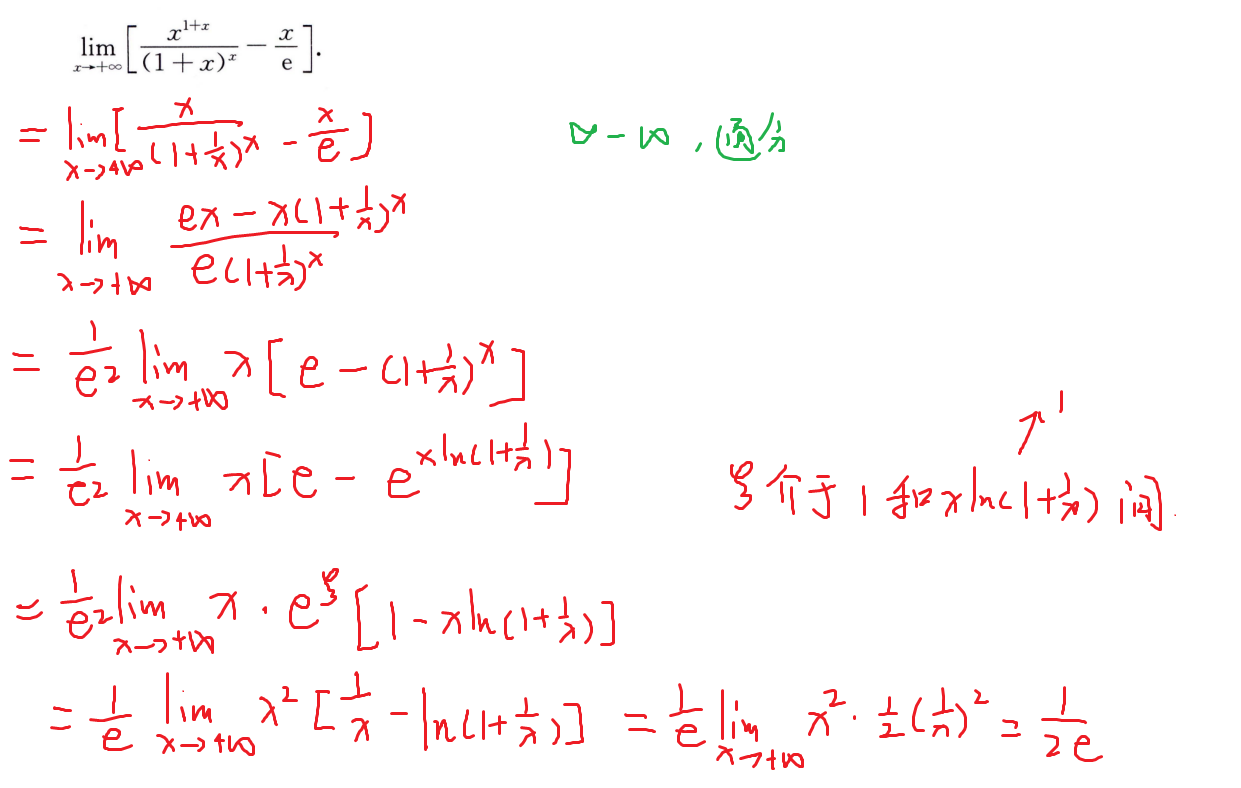 lim_{x→+∞} [ x^{1+x}/(1+x)^x − x/e ].
= lim_{x→+∞} [ x/(1+1/x)^x − x/e ]  ∞−∞，通分
= lim_{x→+∞} (ex − x(1+1/x)^x)/(e(1+1/x)^x)
= 1/e² lim_{x→+∞} x[e − (1+1/x)^x]
= 1/e² lim_{x→+∞} x[e − e^{xln(1+1/x)}]  ξ介于1和xln(1+1/x)间. ↗1
= 1/e² lim_{x→+∞} x·e^ξ[1−xln(1+1/x)]
= 1/e lim_{x→+∞} x²[1/x − ln(1+1/x)] = 1/e lim_{x→+∞} x²·1/2(1/x)² = 1/2e